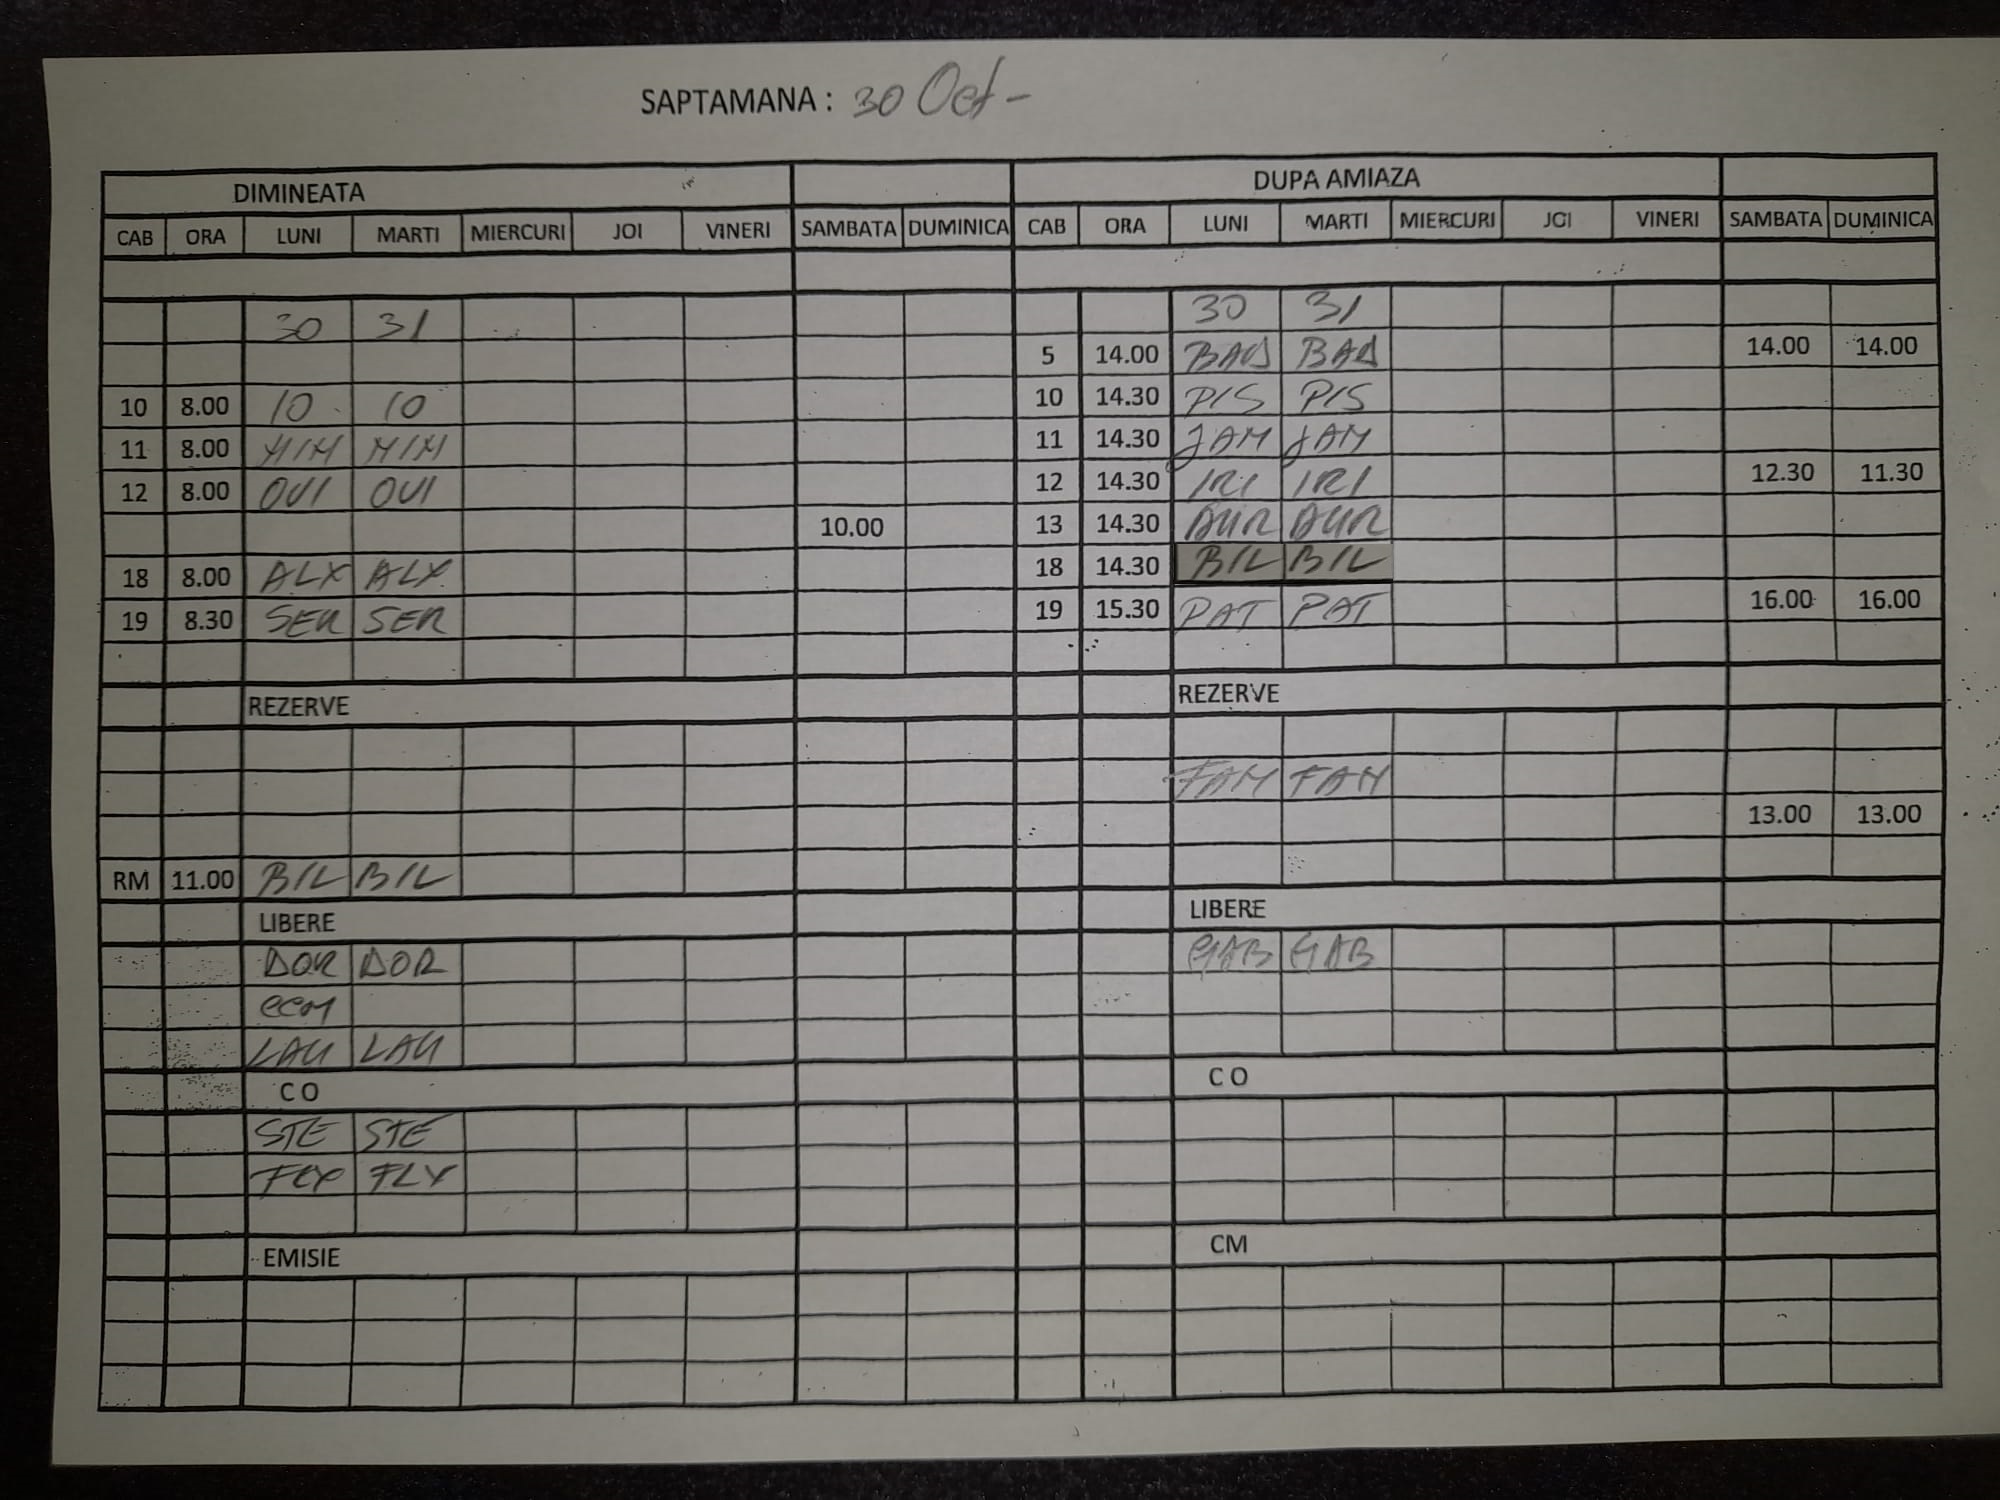 SAPTAMANA : 30 Oct -
DIMINEATA DUPA AMIAZA
CAB ORA LUNI MARTI MIERCURI JOI VINERI SAMBATA DUMINICA CAB ORA LUNI MARTI MIERCURI JOI VINERI SAMBATA DUMINICA
30 31 30 31
5 14.00 BAD BAD 14.00 14.00
10 8.00 10 10 10 14.30 PIS PIS
11 8.00 MIM MIM 11 14.30 JAM JAM
12 8.00 OVI OVI 12 14.30 IRI IRI 12.30 11.30
10.00 13 14.30 AUR AUR
18 8.00 ALX ALX 18 14.30 BIL BIL
19 8.30 SER SER 19 15.30 PAT PAT 16.00 16.00
REZERVE REZERVE
FAM FAM
13.00 13.00
RM 11.00 BIL BIL
LIBERE LIBERE
DOR DOR GAB GAB
LAU LAU
C O C O
STE STE
FLY
EMISIE CM